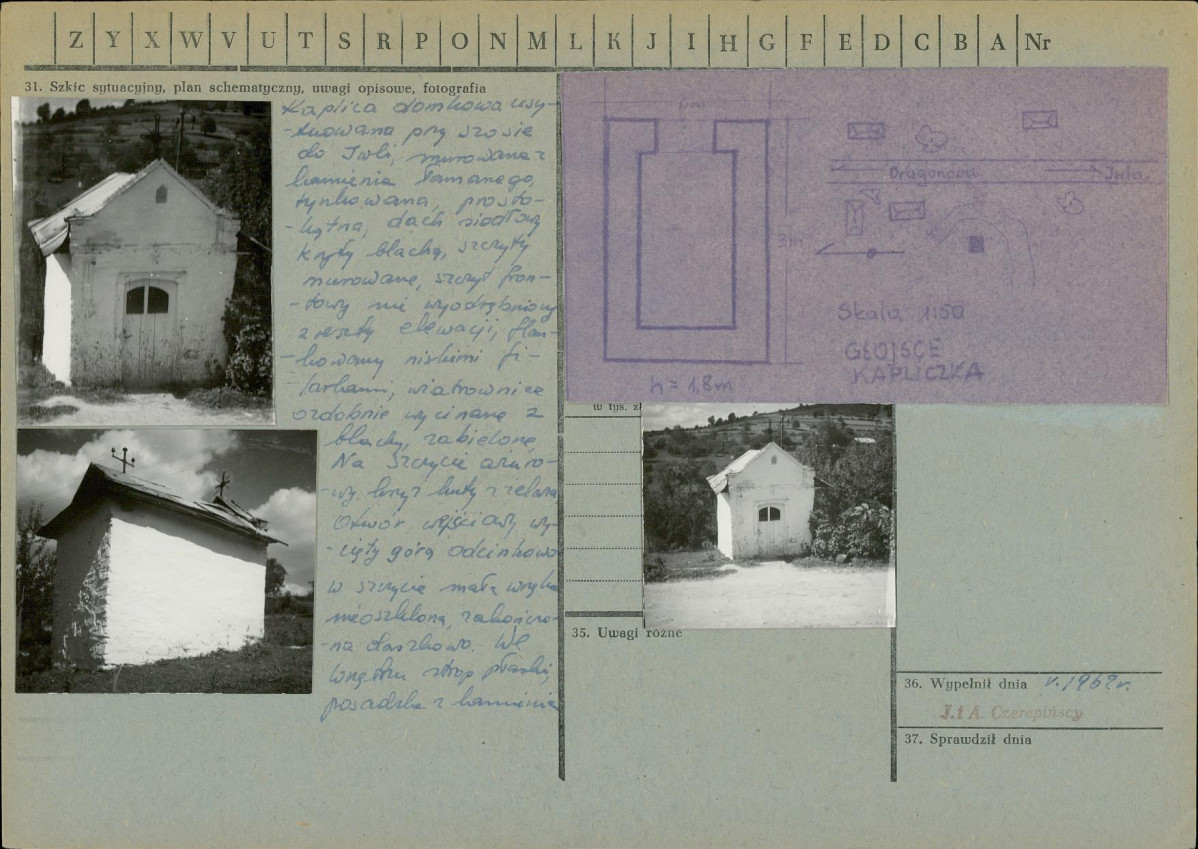 Z Y X W V U T S R P O N M L K J I H G F E D C B A Nr
31. Szkic sytuacyjny, plan schematyczny, uwagi opisowe, fotografia
Kaplica domkowa usy-
-tuowana przy szosie
do Iwli, murowana z
kamienia łamanego,
tynkowana, prosto-
-kątna, dach siodłowy
kryty blachą, szczyty
murowane, szczyt fron-
-towy nie wyodrębniony
z reszty elewacji, flan-
-kowany niskimi fi-
-larkami, wiatrownice
ozdobnie wycinane z
blachy, zabielone.
Na szczycie ażuro-
-wy krzyż kuty z żelaza
Otwór wejściowy wy-
-cięty górą odcinkowo
w szczycie mała wnęka
nieoszklona, zakończo-
-na daszkowo. We
wnętrzu strop płaski,
posadzka z kamienia
6m
3m
h = 1,8m
Dragonowa
Iwla
Skala 1:50
GŁOJSCE
KAPLICZKA
w tys. z
35. Uwagi różne
36. Wypełnił dnia V. 1962 r.
J. i A. Czerepińscy
37. Sprawdził dnia